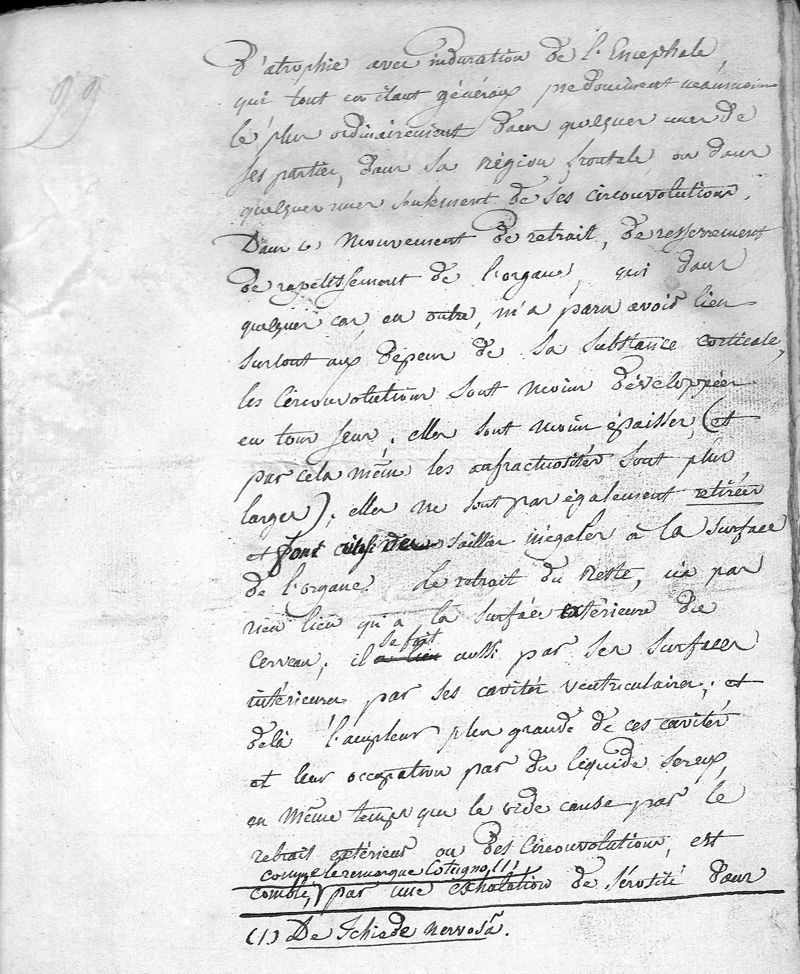 99
d'atrophie avec induration de l'Encephale,
qui tout en etant généraux predominent neanmoins
le plus ordinairement dans quelques unes de
ses parties, dans sa région frontale, ou dans
quelques unes seulement de ses circonvolutions.
Dans ce mouvement de retrait, de resserrement
de rapetissement de l'organe, qui dans
quelques cas, en outre, m'a paru avoir lieu
surtout aux dépens de sa substance corticale,
les circonvolutions sont moins développées
en tous sens; elles sont moins épaisses, (et
par cela même les anfractuosités sont plus
larges); elles ne sont pas également retirées
et font des saillies inégales à la surface
de l'organe. Le retrait du reste, n'a pas
rien lieu qu'à la surface extérieure du
cerveau; il
se fait
a lieu aussi par ses surfaces
intérieures par ses cavités ventriculaires; et
delà l'ampleur plus grande de ces cavités
et leur occupation par du liquide sereux,
en même temps que le vide cause par le
retrait extérieur ou des circonvolutions, est
comme le remarque Cotugno (1)
comblé, par une exhalation de sérosité dans
(1) De Ischiade nervosâ.